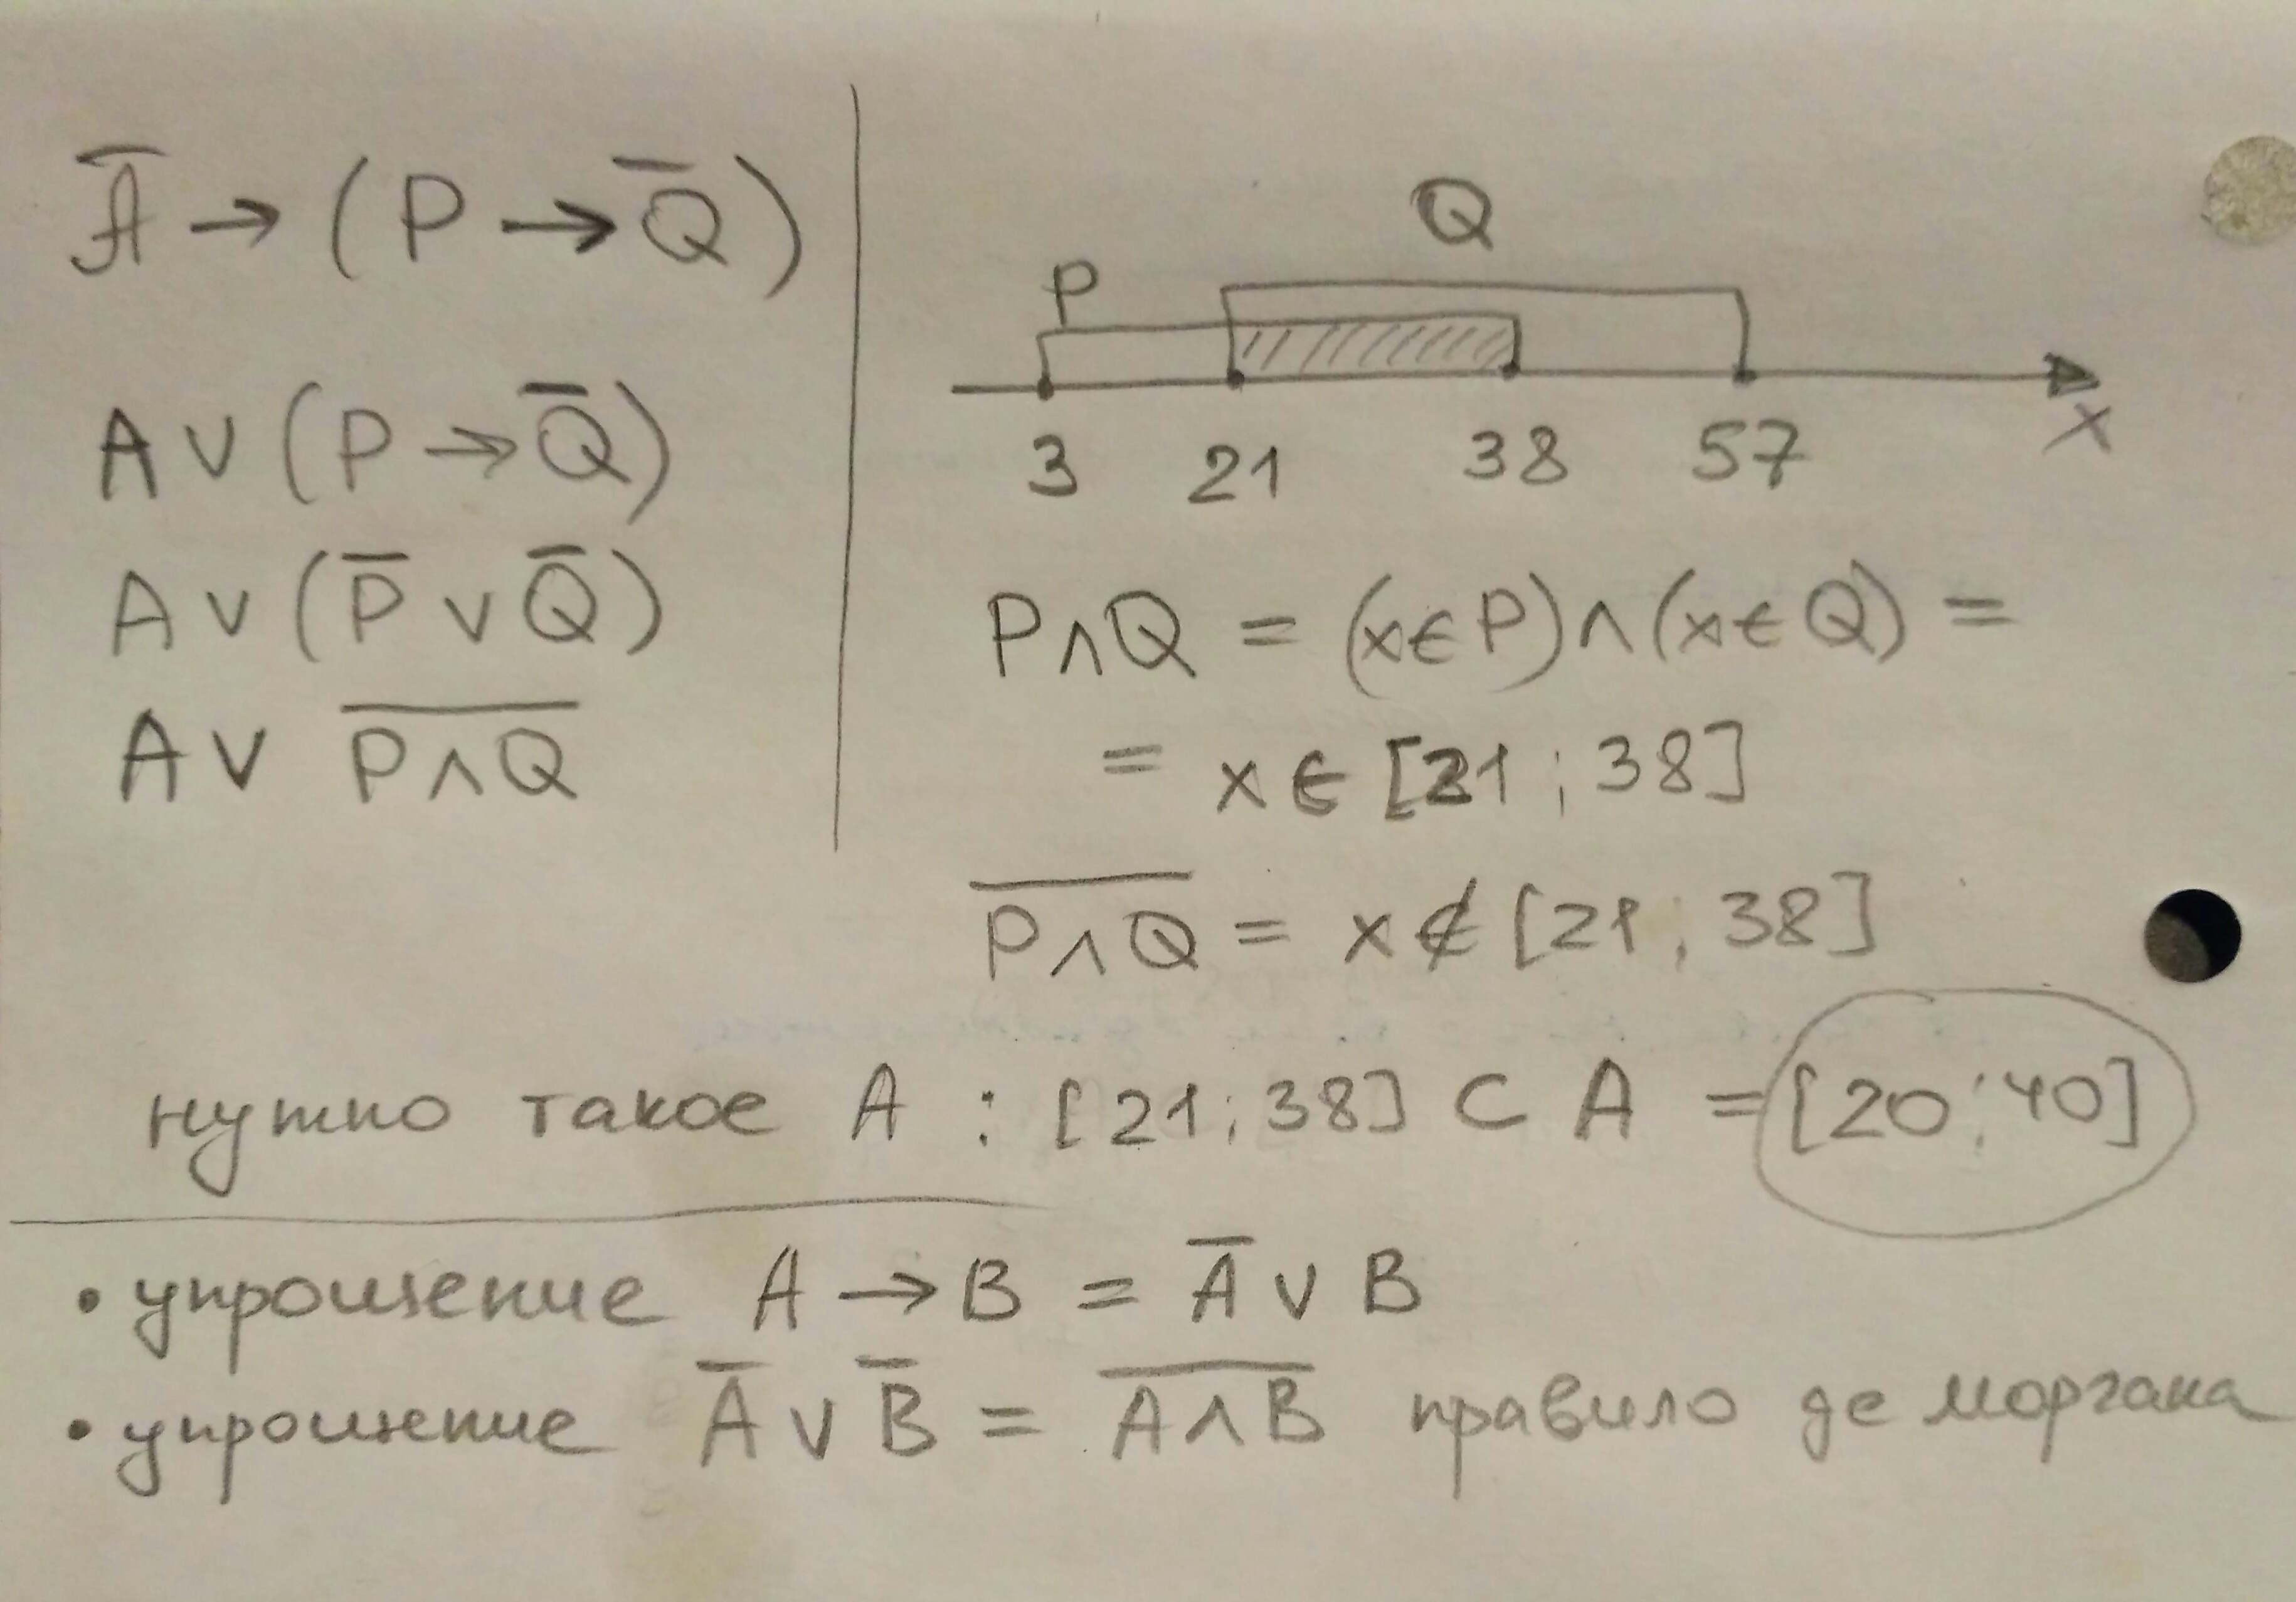 A̅ → (P → Q̅)
A ∨ (P → Q̅)
A ∨ (P̅ ∨ Q̅)
A ∨ P̅ ̅∧̅ ̅Q̅
Q
P
3 21 38 57 x
P∧Q = (x∈P)∧(x∈Q) =
= x ∈ [21 ; 38]
P̅∧̅Q̅ = x ∉ [21 ; 38]
нужно такое A : [21 ; 38] ⊂ A = [20 ; 40]
• упрощение A → B = A̅ ∨ B
• упрощение A̅ ∨ B̅ = A̅∧̅B̅ правило де моргана